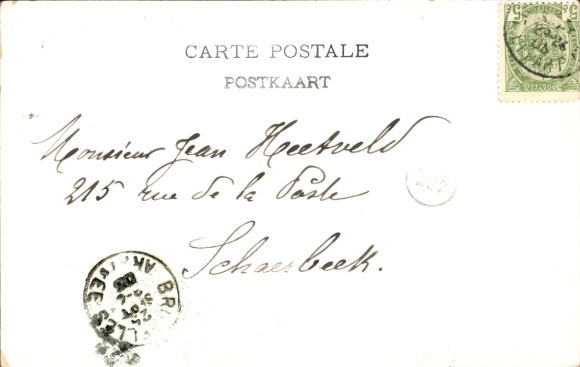 CARTE POSTALE
POSTKAART
5 5
Monsieur Jean Heetveld
215 rue de la Poste
Schaerbeek.
BRUXELLES
ARRIVEE
25